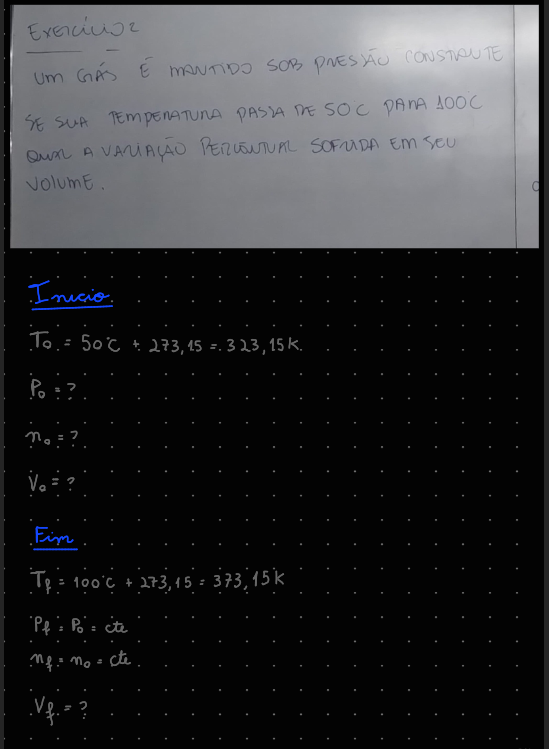 Exercício 2
UM GÁS É MANTIDO SOB PRESSÃO CONSTANTE
SE SUA TEMPERATURA PASSA DE 50C PARA 100C
QUAL A VARIAÇÃO PERCENTUAL SOFRIDA EM SEU
VOLUME.
Inicio
T₀ = 50°C + 273,15 = 323,15K
P₀ = ?
n₀ = ?
V₀ = ?
Fim
Tf = 100°C + 273,15 = 373,15K
Pf = P₀ = cte
nf = n₀ = cte
Vf = ?